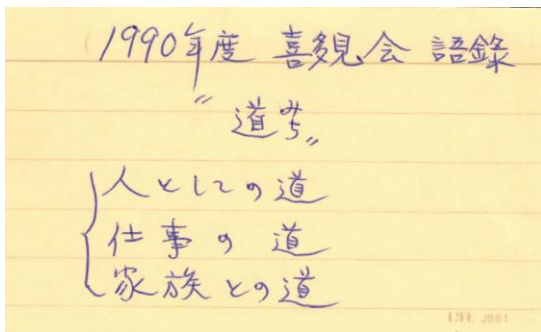 1990年度 喜多見会 語録
〝道みち〟
人としての道
仕事の道
家族との道
LIFE J861